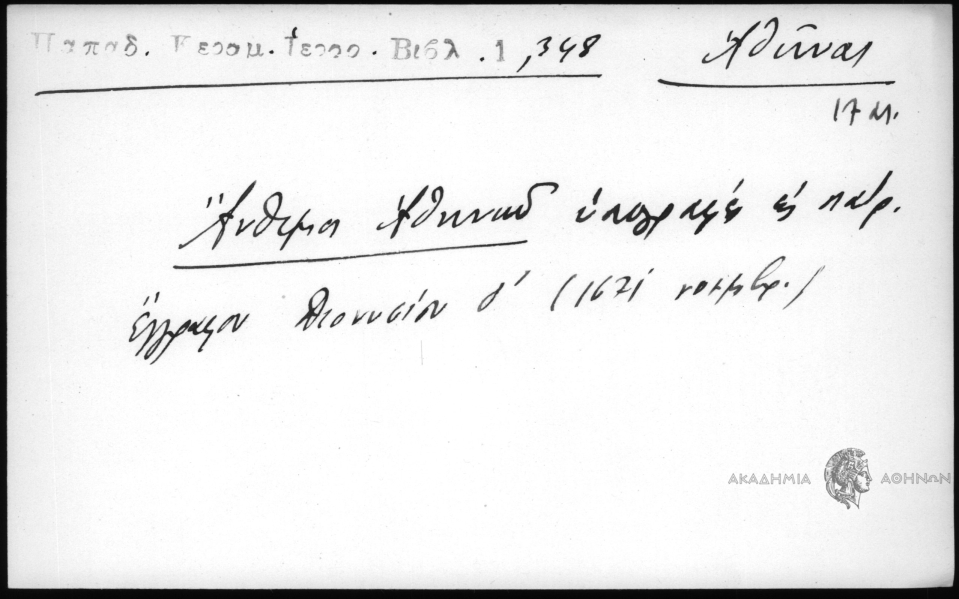 Παπαδ. Κεραμ. ἱερος. Βιβλ. 1, 348
Ἀθῆναι
17 αι.
Ἄνθιμοι Ἀθηνῶν ὑπογραφὲ εἰς πατρ.
ἔγγραφον Διονυσίου δ' (1671 νοεμβρ.)
ΑΚΑΔΗΜΙΑ ΑΘΗΝΩΝ